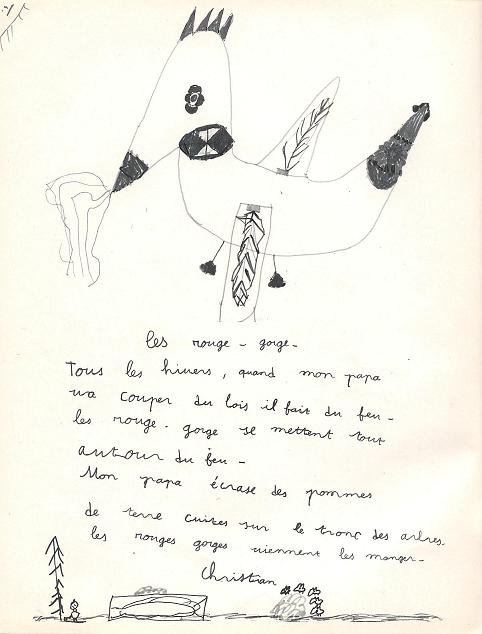 les rouge-gorge-
Tous les hivers, quand mon papa
va couper du bois il fait du feu-
les rouge-gorge se mettent tout
autour du feu-
Mon papa écrase des pommes
de terre cuites sur le tronc des arbres.
les rouges gorges viennent les manger-
Christian